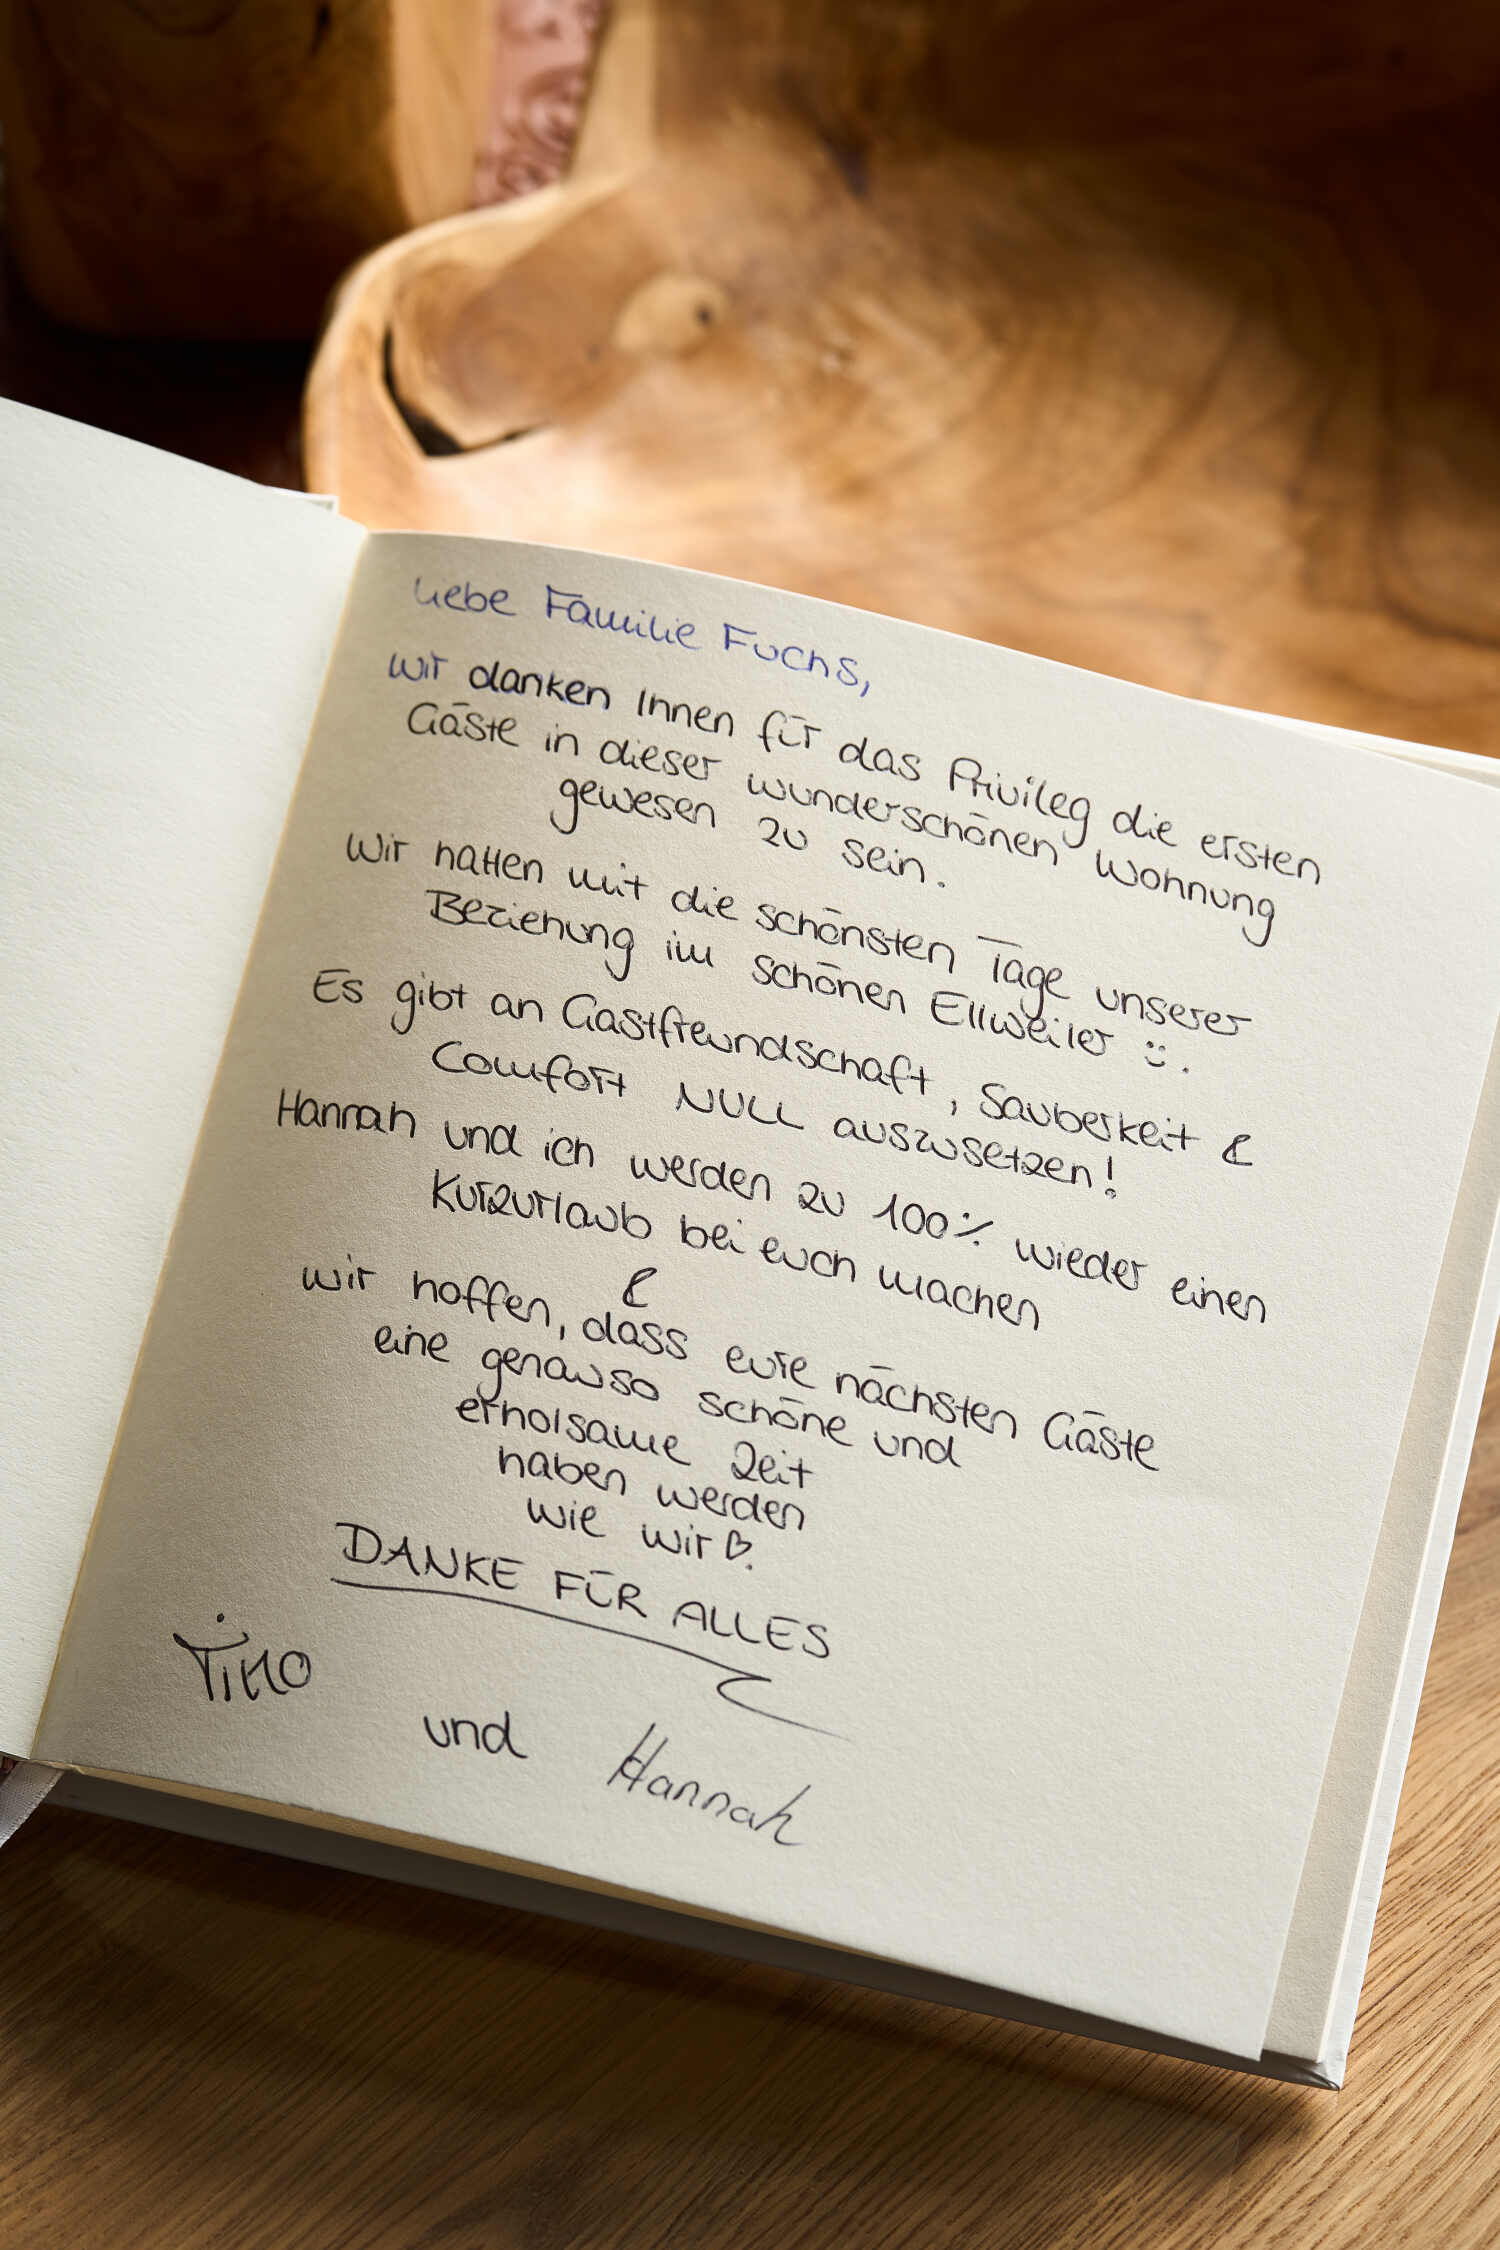 Liebe Familie Fuchs,
wir danken Innen für das Privileg die ersten
Gäste in dieser wunderschönen Wohnung
gewesen zu sein.
Wir hatten mit die schönsten Tage unserer
Beziehung im schönen Ellweiler :).
Es gibt an Gastfreundschaft, Sauberkeit &
Comfort NULL auszusetzen!
Hannah und ich werden zu 100% wieder einen
Kurzurlaub bei euch machen
&
wir hoffen, dass eure nächsten Gäste
eine genauso schöne und
erholsame Zeit
haben werden
wie wir ♡.
DANKE FÜR ALLES
Timo
und Hannah